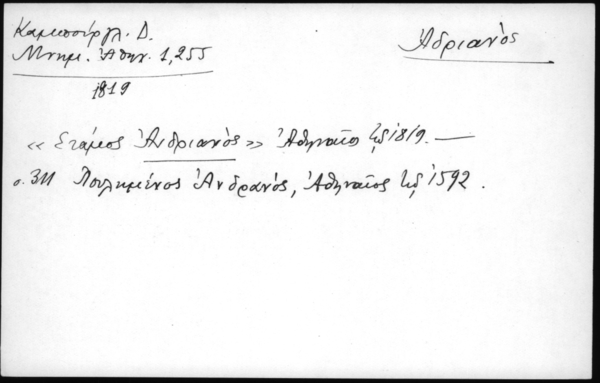 Καμπούργλ. Δ.
Μνημ. Ἀθην. 1,255
1819
Ἀδριανός
«Στάμος Ἀνδριανός» Ἀθηναῖος 1819. —
σ. 311 Πουλημένος Ἀνδρανός, Ἀθηναῖος 1592.